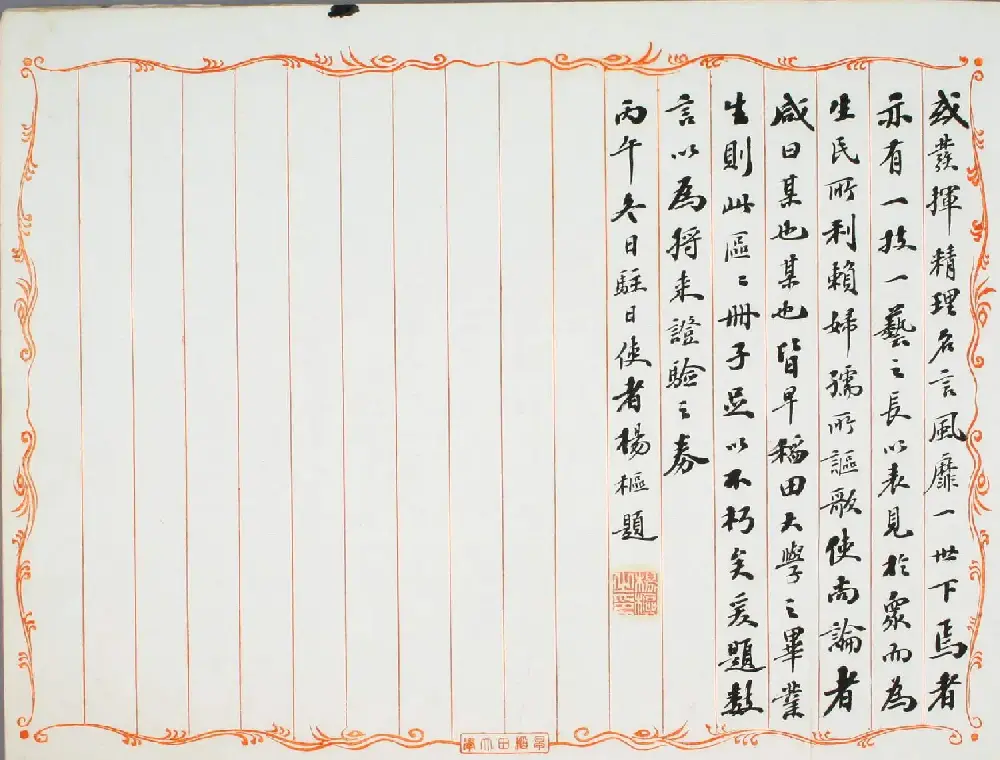 或發揮精理名言風靡一世下焉者
亦有一技一藝之長以表見於眾而為
生民所利賴婦孺所謳歌使尚論者
咸曰某也某也皆早稻田大學之畢業
生則此區〻冊子足以不朽矣爰題數
言以為將來證驗之券
丙午冬日駐日使者楊樞題
楊樞之印
早稻田大學